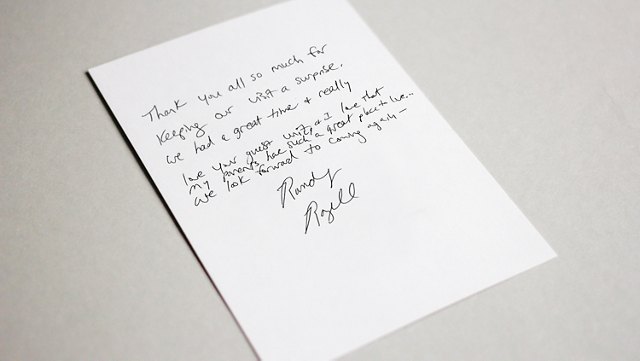 Thank you all so much for
keeping our visit a surprise.
we had a great time & really
love your guest units & I love that
my parents have such a great place to live...
we look forward to coming again -
Randy
Rozell